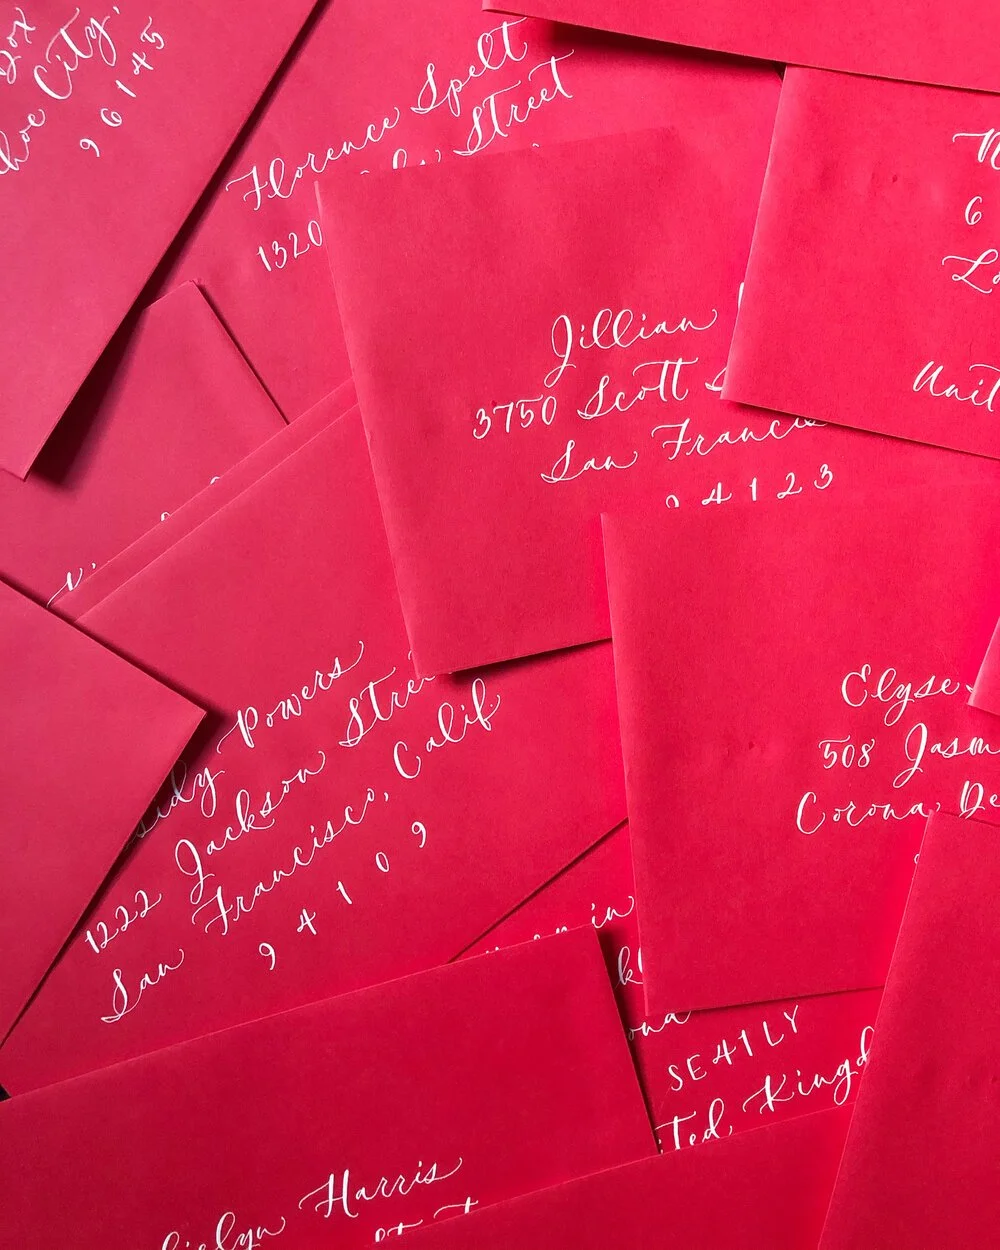 Box
hoe City,
96145
Florence Spelt
Street
1320
Jillian
3750 Scott S
San Francisco
94123
N
6
La
Unit
Powers
1222 Jackson Street
San Francisco, Calif
94109
Elyse
508 Jasm
Corona De
in
SE41LY
ted Kingd
Harris